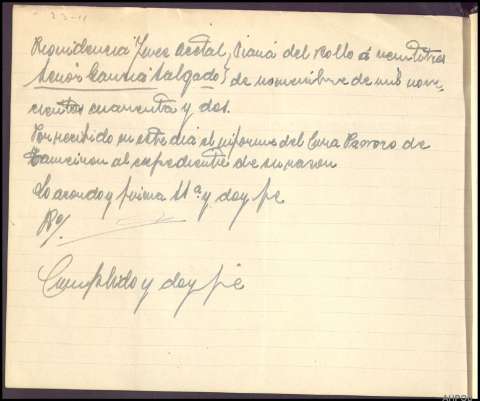 23-11
Providencia Juez Acctal, Viana del Bollo á veintitres
Señor García Salgado} de noviembre de mil nove-
cientos cuarenta y dos.
Por recibido en este día el informe del Cura Párroco de
al expediente de su razon
Lo acordo y firma Sª. y doy fe
Cumplido y doy fé